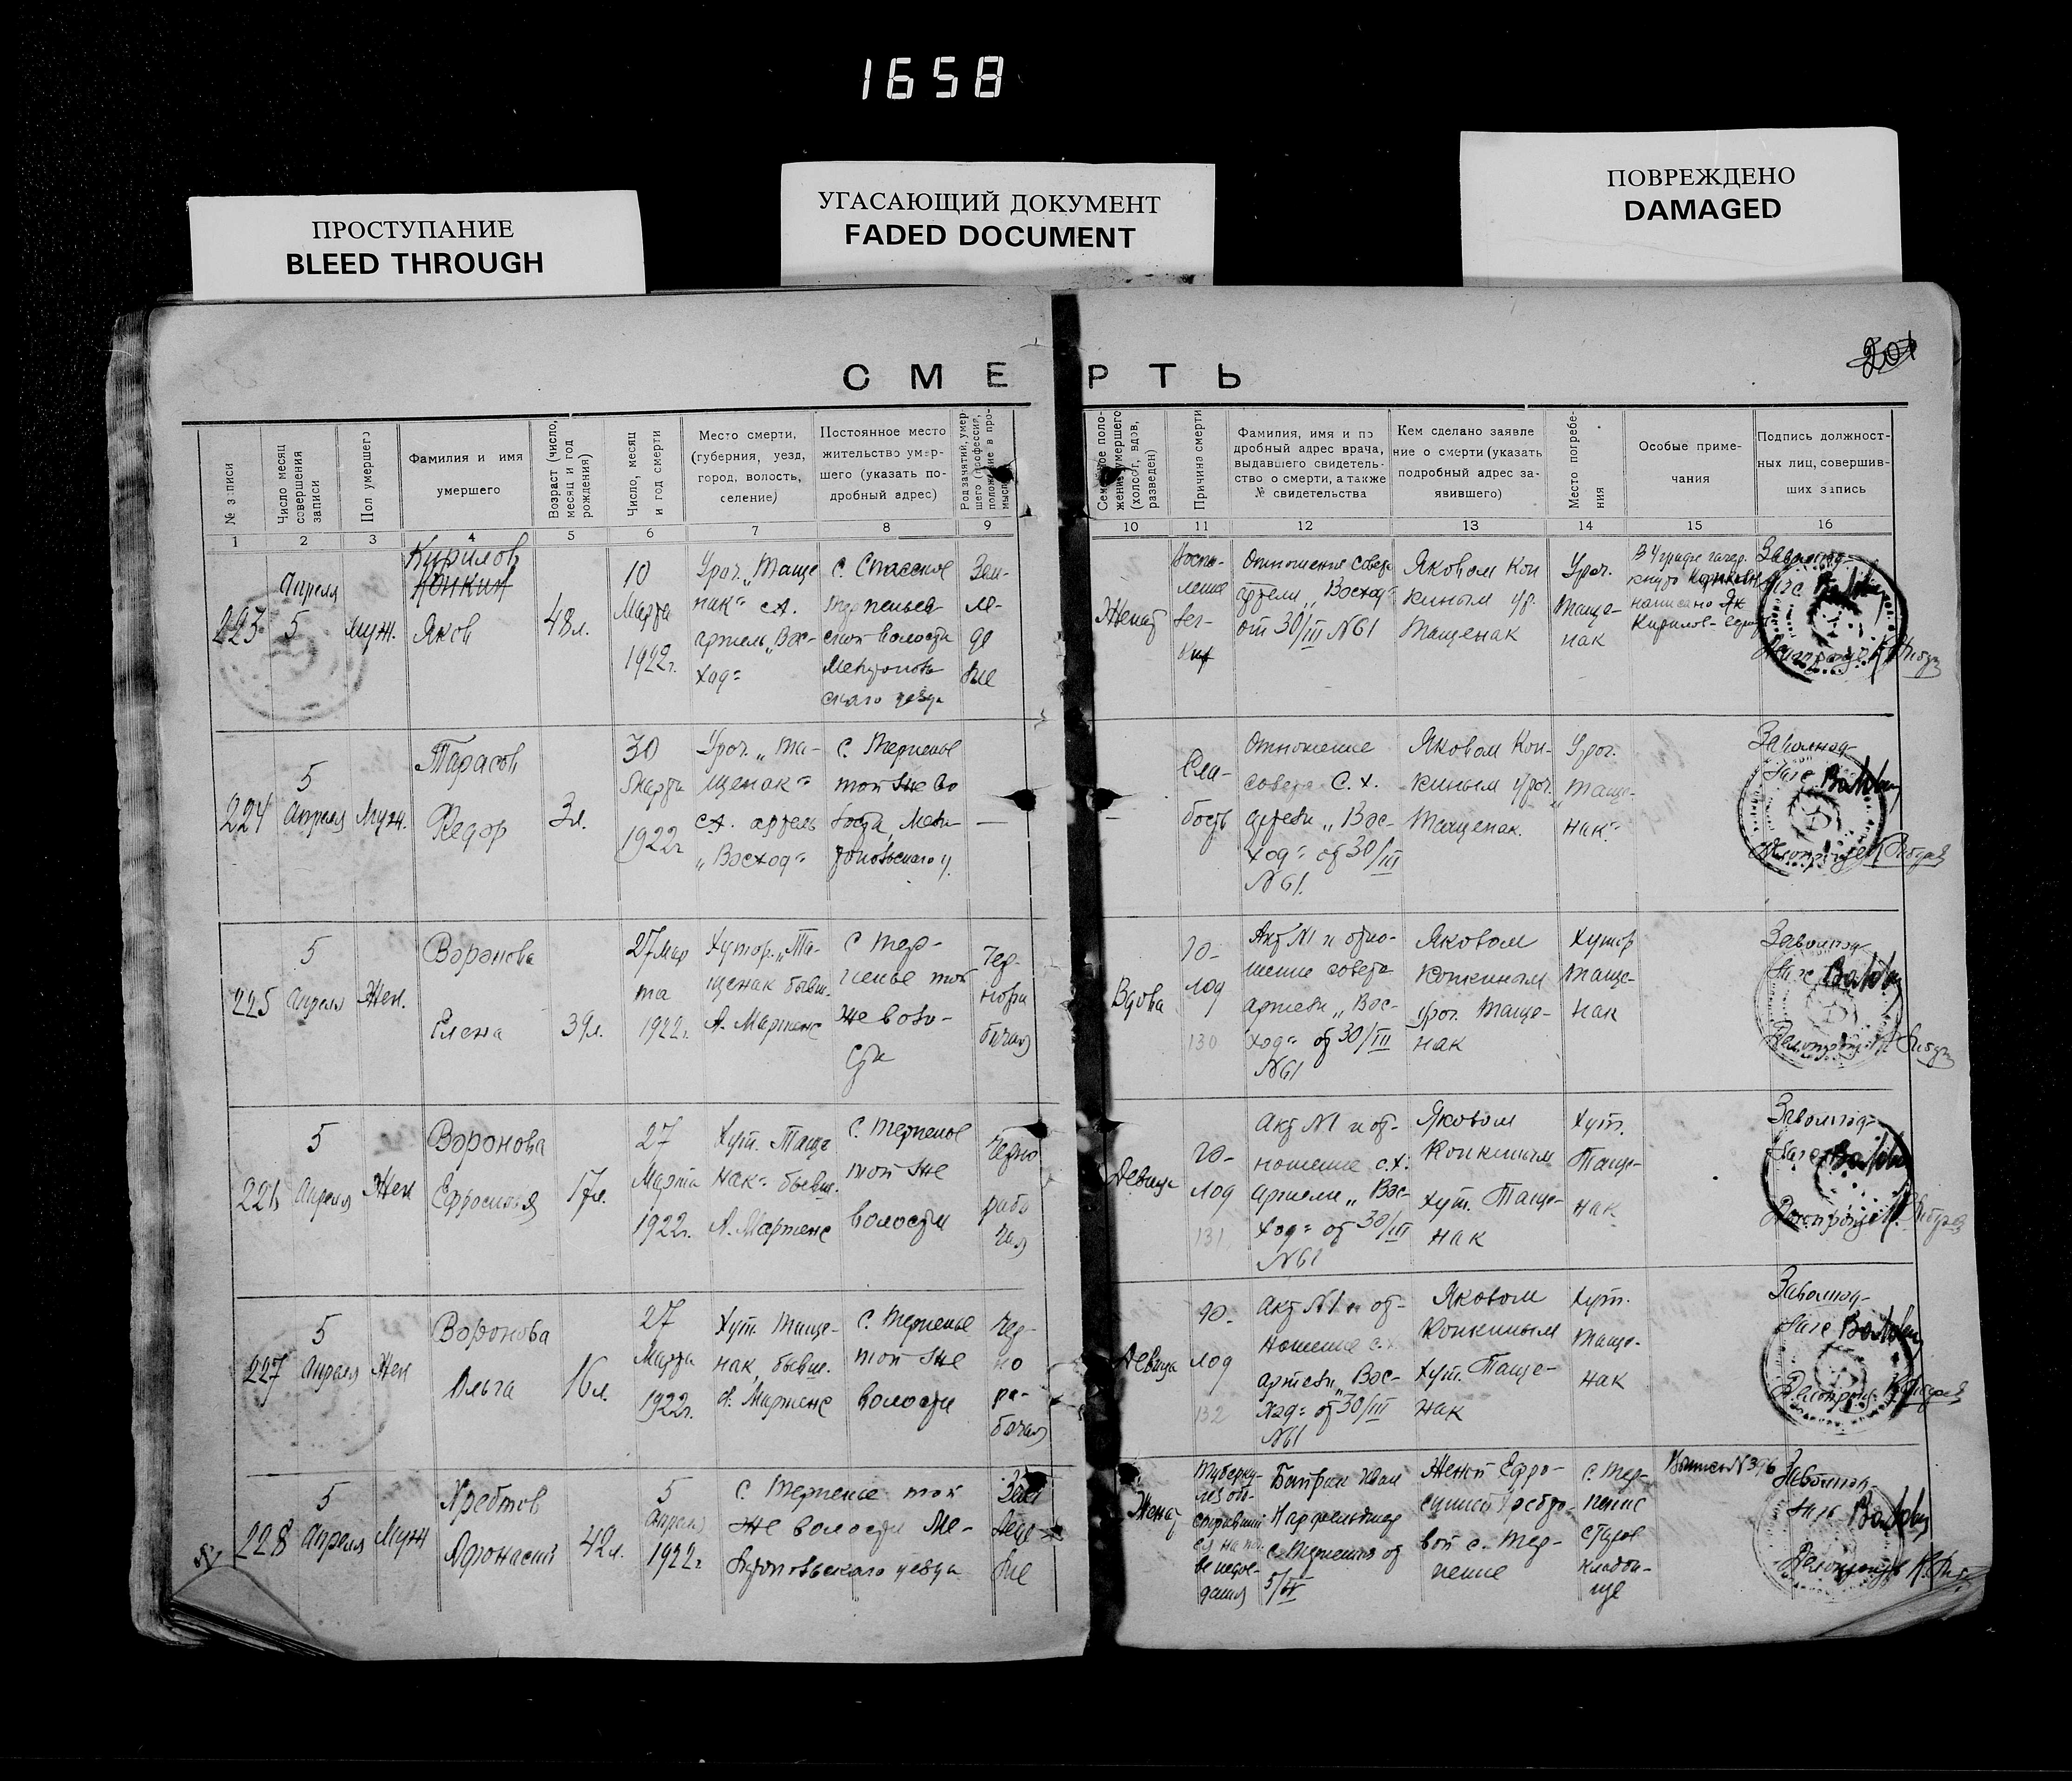 1658
ПРОСТУПАНИЕ
BLEED THROUGH
УГАСАЮЩИЙ ДОКУМЕНТ
FADED DOCUMENT
ПОВРЕЖДЕНО
DAMAGED
201
СМЕРТЬ
№ записи
Число месяц
совершения
записи
Пол умершего
Фамилия и имя
умершего
Возраст (число,
месяц и год
рождения)
Число, месяц
и год смерти
Место смерти,
(губерния, уезд,
город, волость,
селение)
Постоянное место
жительство умер-
шего (указать по-
дробный адрес)
Род занятий, умер-
шего (профессия,
положение в про-
мысле
Семейное поло-
жение умершего
(холост, вдов,
разведен)
Причина смерти
Фамилия, имя и по
дробный адрес врача,
выдавшего свидетель-
ство о смерти, а также
№ свидетельства
Кем сделано заявле
ние о смерти (указать
подробный адрес за-
явившего)
Место погребе-
ния
Особые приме-
чания
Подпись должност-
ных лиц, совершив-
ших запись
1 2 3 4 5 6 7 8 9 10 11 12 13 14 15 16
223
Апреля
5
Муж.
Кирилов
Конкин
Яков
48 л.
10
Марта
1922 г.
Уроч. „Таще
нак" с.х.
артель „Вос-
ход"
с. Спасское
Терпеньев
ской волости
Мелитополь
скаго уезда
Зем-
ле-
де
лие
Женат
Воспа-
ление
лег-
ких
Отношение совета
артели „Восход"
от 30/III №61
Яковом Кон
киным ур.
Тащенак
Уроч.
Таще-
нак
В 4 графе зачер.
кнуто Конкин
написано
Кирилов
Заволпод-
224
5
Апреля
Муж.
Тарасов
Федор
3 л.
30
Марта
1922 г.
Уроч. „Та-
щенак"
с.х. артель
„Восход"
с. Терпенье
той же во
лости Мели
топольскаго у.
—
—
Сла-
бость
Отношение
совета с.х.
артели „Вос-
ход" от 30/III
№61.
Яковом Кон-
киным уроч.
Тащенак.
Уроч.
„Таще-
нак"
Заволпод-
225
5
Апреля
Жен.
Воронова
Елена
39 л.
27 Мар
та
1922 г.
Хутор. „Та-
щенак бывш.
А. Мартенс
с. Тер-
пенье той
же воло-
сти
Чер-
нора
бочая
Вдова
Го-
лод
130
Акт №1 и отно-
шение совета
артели „Вос-
ход" от 30/III
№61
Яковом
Конкиным
уроч. Таще-
нак
Хутор
Таще-
нак
Заволпод-
226
5
Апреля
Жен
Воронова
Ефросинья
17 л.
27
Марта
1922 г.
Хут. Таще
нак" бывш.
А. Мартенс
с. Терпенье
той же
волости
Черно
рабо
чая
Девица
Го-
лод
131
Акт №1 и от-
ношение с.х.
артели „Вос-
ход" от 30/III
№61
Яковом
Конкиным
хут. Таще-
нак
Хут.
Таще-
нак
Заволпод-
227
5
Апреля
Жен
Воронова
Ольга
16 л.
27
Марта
1922 г.
Хут. Таще-
нак, бывш.
А. Мартенс
с. Терпенье
той же
волости
Чер-
но
ра-
бочая
Девица
Го-
лод
132
Акт №1 и от-
ношение с.х
артели „Вос-
ход" от 30/III
№61
Яковом
Конкиным
хут. Таще-
нак
Хут.
Таще-
нак
Заволпод-
228
5
Апреля
Муж
Хребтов
Афонасий
42 л.
5
Апреля
1922 г.
с. Терпенье той
же волости Ме-
литопольскаго уезда
Зем
леде
лие
Женат
Туберку-
лез
Иван
с. Терпения от
5/IV
Женой Ефро-
синией Хребто-
вой с. Тер-
пение
с. Тер-
пение
старое
кладби-
ще
Выпись №396
Заволпод-